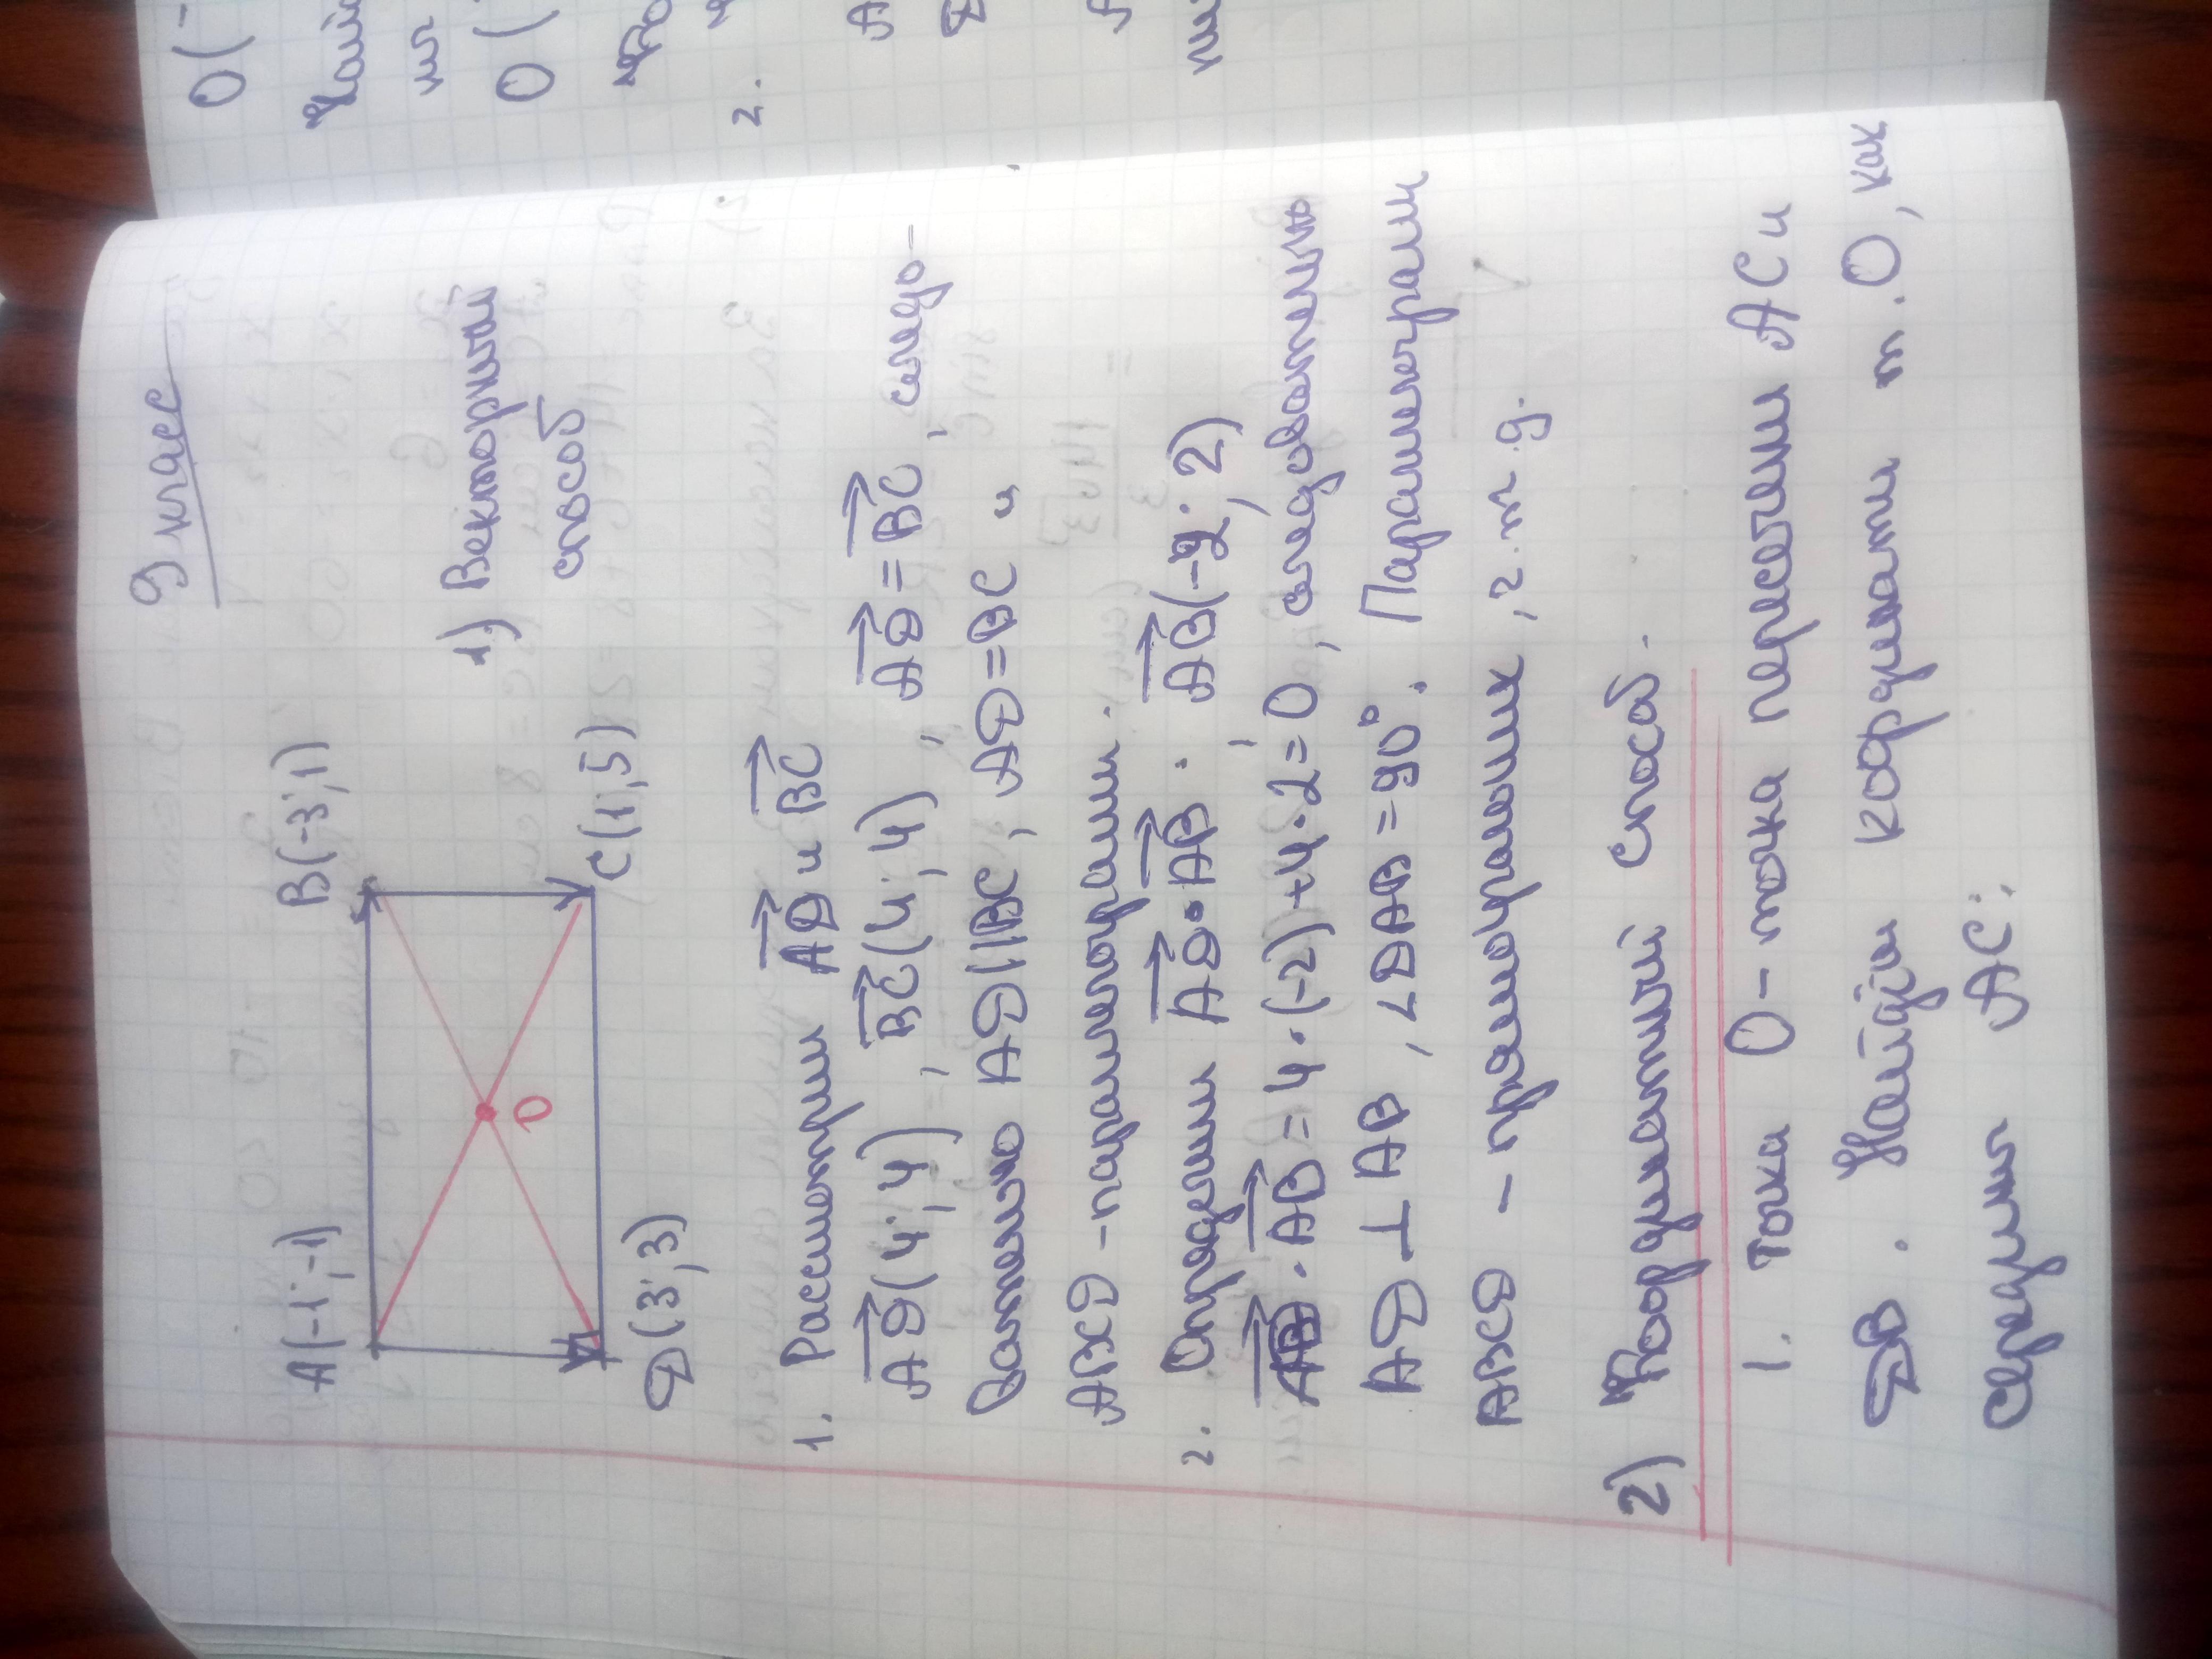 9 класс
A(-1; -1)
B(-3; 1)
1) Векторный
способ
O
D(3; 3)
C(1; 5)
1. Рассмотрим AD и BC
AD(4; 4), BC(4; 4), AD = BC, следо-
вательно AD||BC, AD=BC и
ABCD - параллелограмм.
2. Определим AD • AB. AB(-2; 2)
AD · AB = 4·(-2)+4·2=0, следовательно
AD ⊥ BA, ∠DAB = 90°. Параллелограмм
ABCD - прямоугольник, ч.т.д.
2) Координатный способ.
1. Точка O - точка пересечени AC и
DB. Найдём координаты т. O, как
середины AC:
O(-
Найд
O(
2.